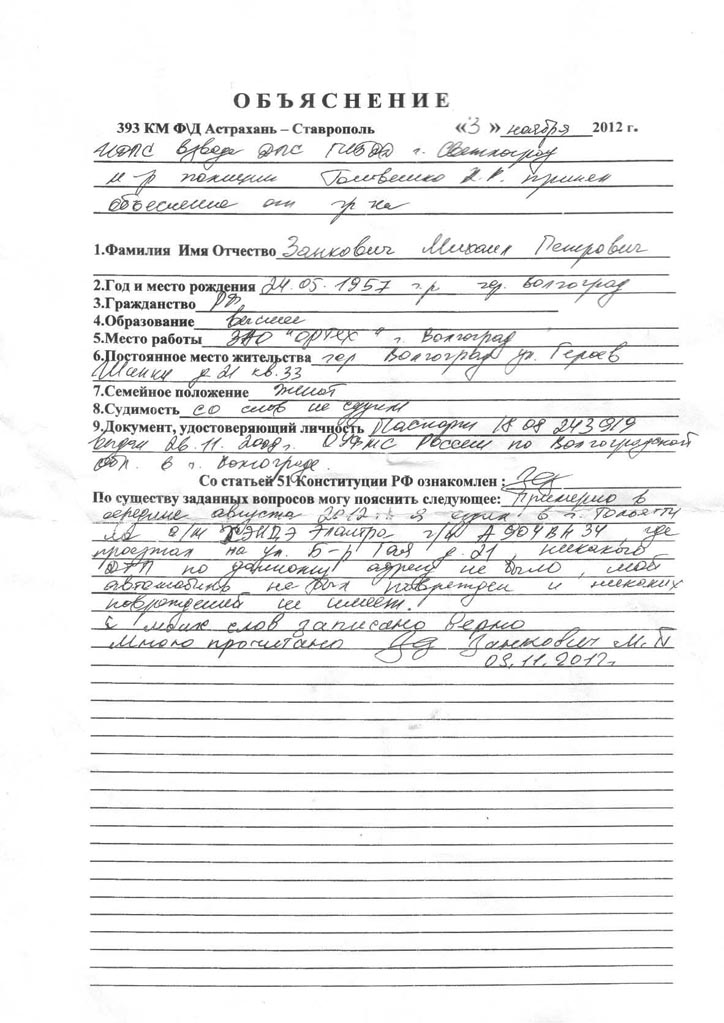 ОБЪЯСНЕНИЕ
393 КМ Ф\Д Астрахань – Ставрополь «3» ноября 2012 г.
ИДПС взвода ДПС ГИБДД г. Светлоград
м-р полиции принял
объеснение от гр-на
1.Фамилия Имя Отчество Занкович Михаил Петрович
2.Год и место рождения 24.05.1957 г.р гор. Волгоград
3.Гражданство РФ
4.Образование высшее
5.Место работы ЗАО "ОРТЕХ" г. Волгоград
6.Постоянное место жительства гор Волгоград ул. Героев
Шипки д 21 кв. 33
7.Семейное положение женат
8.Судимость со слов не судим
9.Документ, удостоверяющий личность Паспорт 18 08 243919
выдан 26.11.2008г. ОУФМС России по Волгоградской
обл. в г. Волгограде.
Со статьей 51 Конституции РФ ознакомлен :
По существу заданных вопросов могу пояснить следующее: Примерно в
середине августа 2012 г. я в г. Тольятти
на а/м ХЭНДЭ Элантра г/н А904ВН34, где
проезжал на ул. Б-р Гая д. 21, никакого
ДТП по данному адресу не было, мой
автомобиль не был поврежден и никаких
повреждений не имеет.
С моих слов записано верно
Мною прочитано Занкович М.П
03.11.2012г.